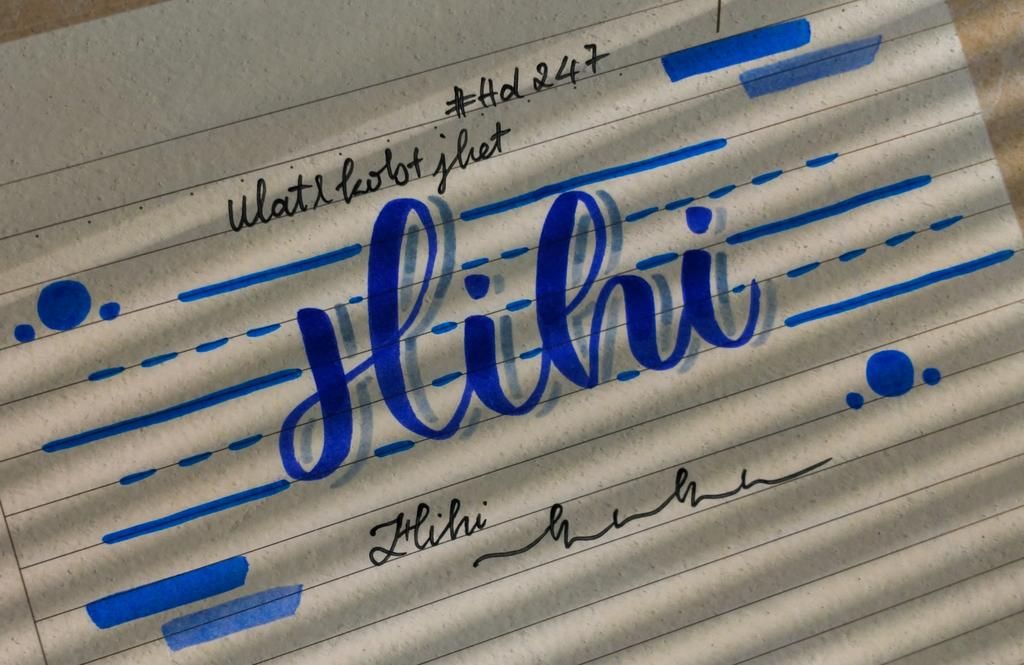 #Hd 247
Ulatl kobt jhet
Hihi
Hihi